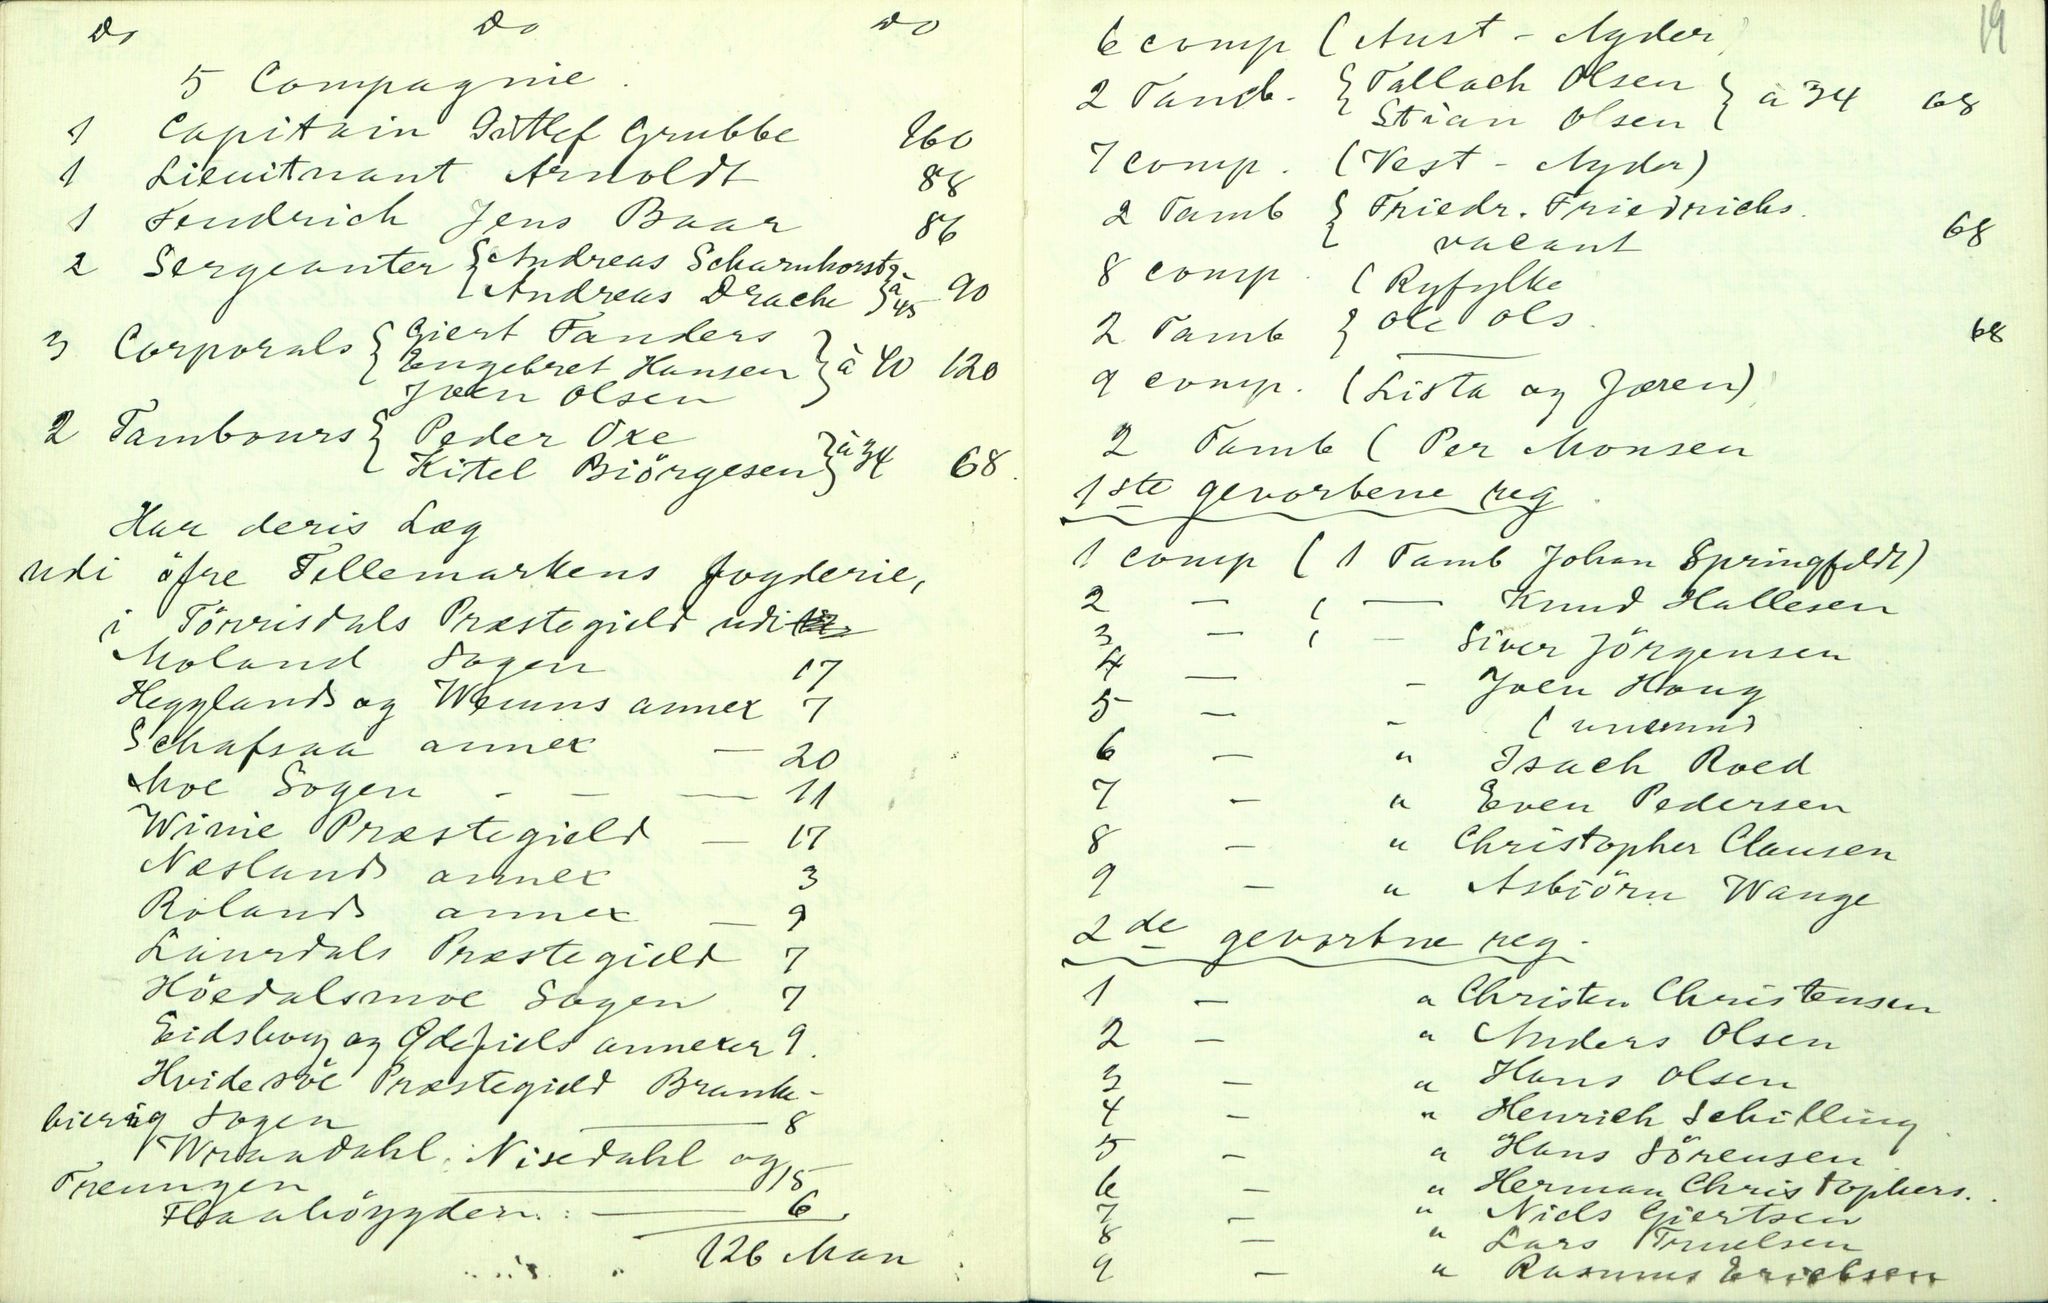 Do Do Do
5 Compagnie.
1 Capitain Ditlef Grubbe 160
1 Lieuitnant Arnoldt 88
1 Fendrich Jens Baar 86
2 Sergeanter { Andreas Scharnhorst
Andreas Drache } à 45 90
3 Corporals { Giert Fanders
Engebret Hansen } à 40 120
Joen Olsen
2 Tambours { Peder Oxe
Kitel Biörgesen } à 34 68.
Har deris Læg
udi öfre Tellemarkens fogderie,
i Törrisdals Præstegield udi
Moland Sogen 17
Hegglands og Weums annex 7
Schafsaa annex — 20
Moe Sogen - — — 11
Winie Præstegield — 17
Næslands annex 3
Rolands annex — 9
Laurdals Præstegield 7
Höedalsmoe Sogen 7
Eidsborg og annexer 9.
Hvidesöe Præstegield Brunke-
bierrig Sogen — 8
Wraadahl, Nisedahl og
Treungen — 15
Flaaböygden: — 6
126 Man
19
6 comp (Aust-Agder)
2 Tamb. { Tallach Olsen
Stian Olsen } à 34 68
7 comp. (Vest-Agder)
2 Tamb { Friedr. Friedrichs.
vacant 68
8 comp. (Ryfylke
2 Tamb { Ole Ols. 68
—
9 comp. (Lista og Jæren)
2 Tamb ( Per Monsen
1ste gevorbene reg.
1 comp ( 1 Tamb Johan Springfeldt)
2 — ( — Knud Hallesen
3 — ( — Siver Jörgensen
4 — - Joen Houg
5 — - (
6 — " Isach Roed
7 — " Even Pedersen
8 — " Christopher Clausen
9 — " Asbiörn Wange
2de gevorbne reg.
1 — " Christen Christensen
2 — " Anders Olsen
3 — " Hans Olsen
4 — " Henrich Schilling
5 — " Hans Sörensen
6 — " Herman Christophers.
7 — " Niels Giertsen
8 — " Lars Truelsen
9 — " Rasmus Erichsen